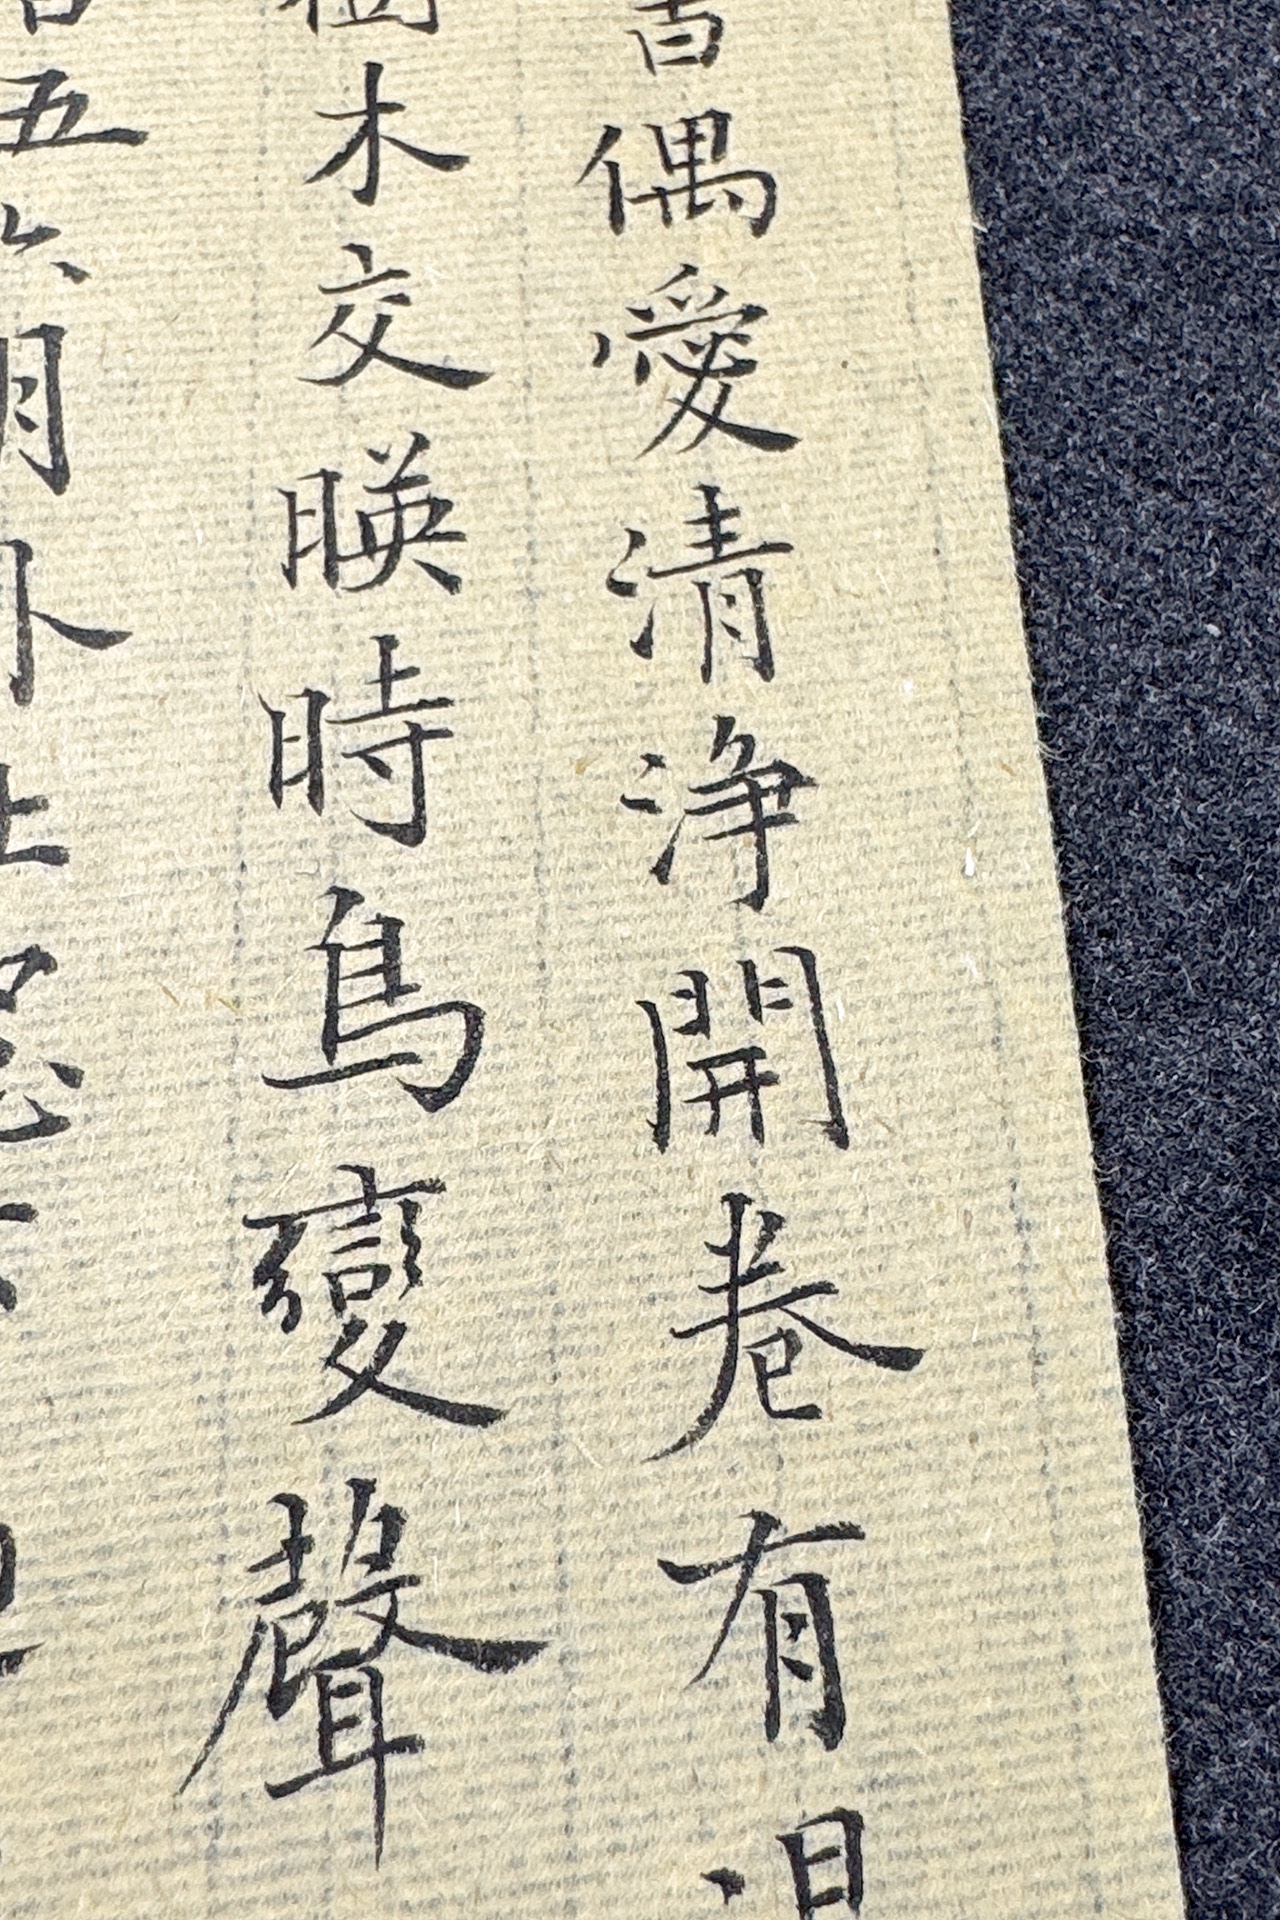 偶愛清浄開卷有
樹木交暎時鳥變聲
五六月